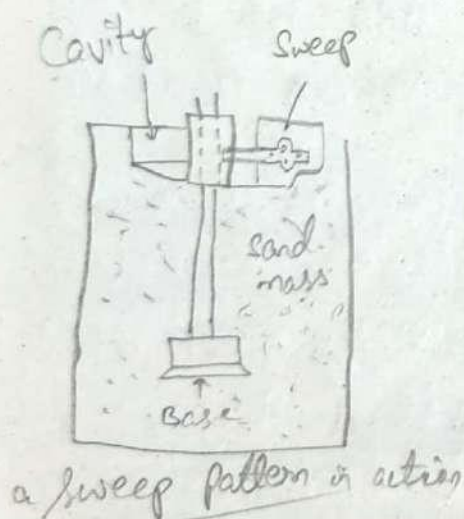 Cavity
Sweep
sand
mass
Base
a sweep pattern in action